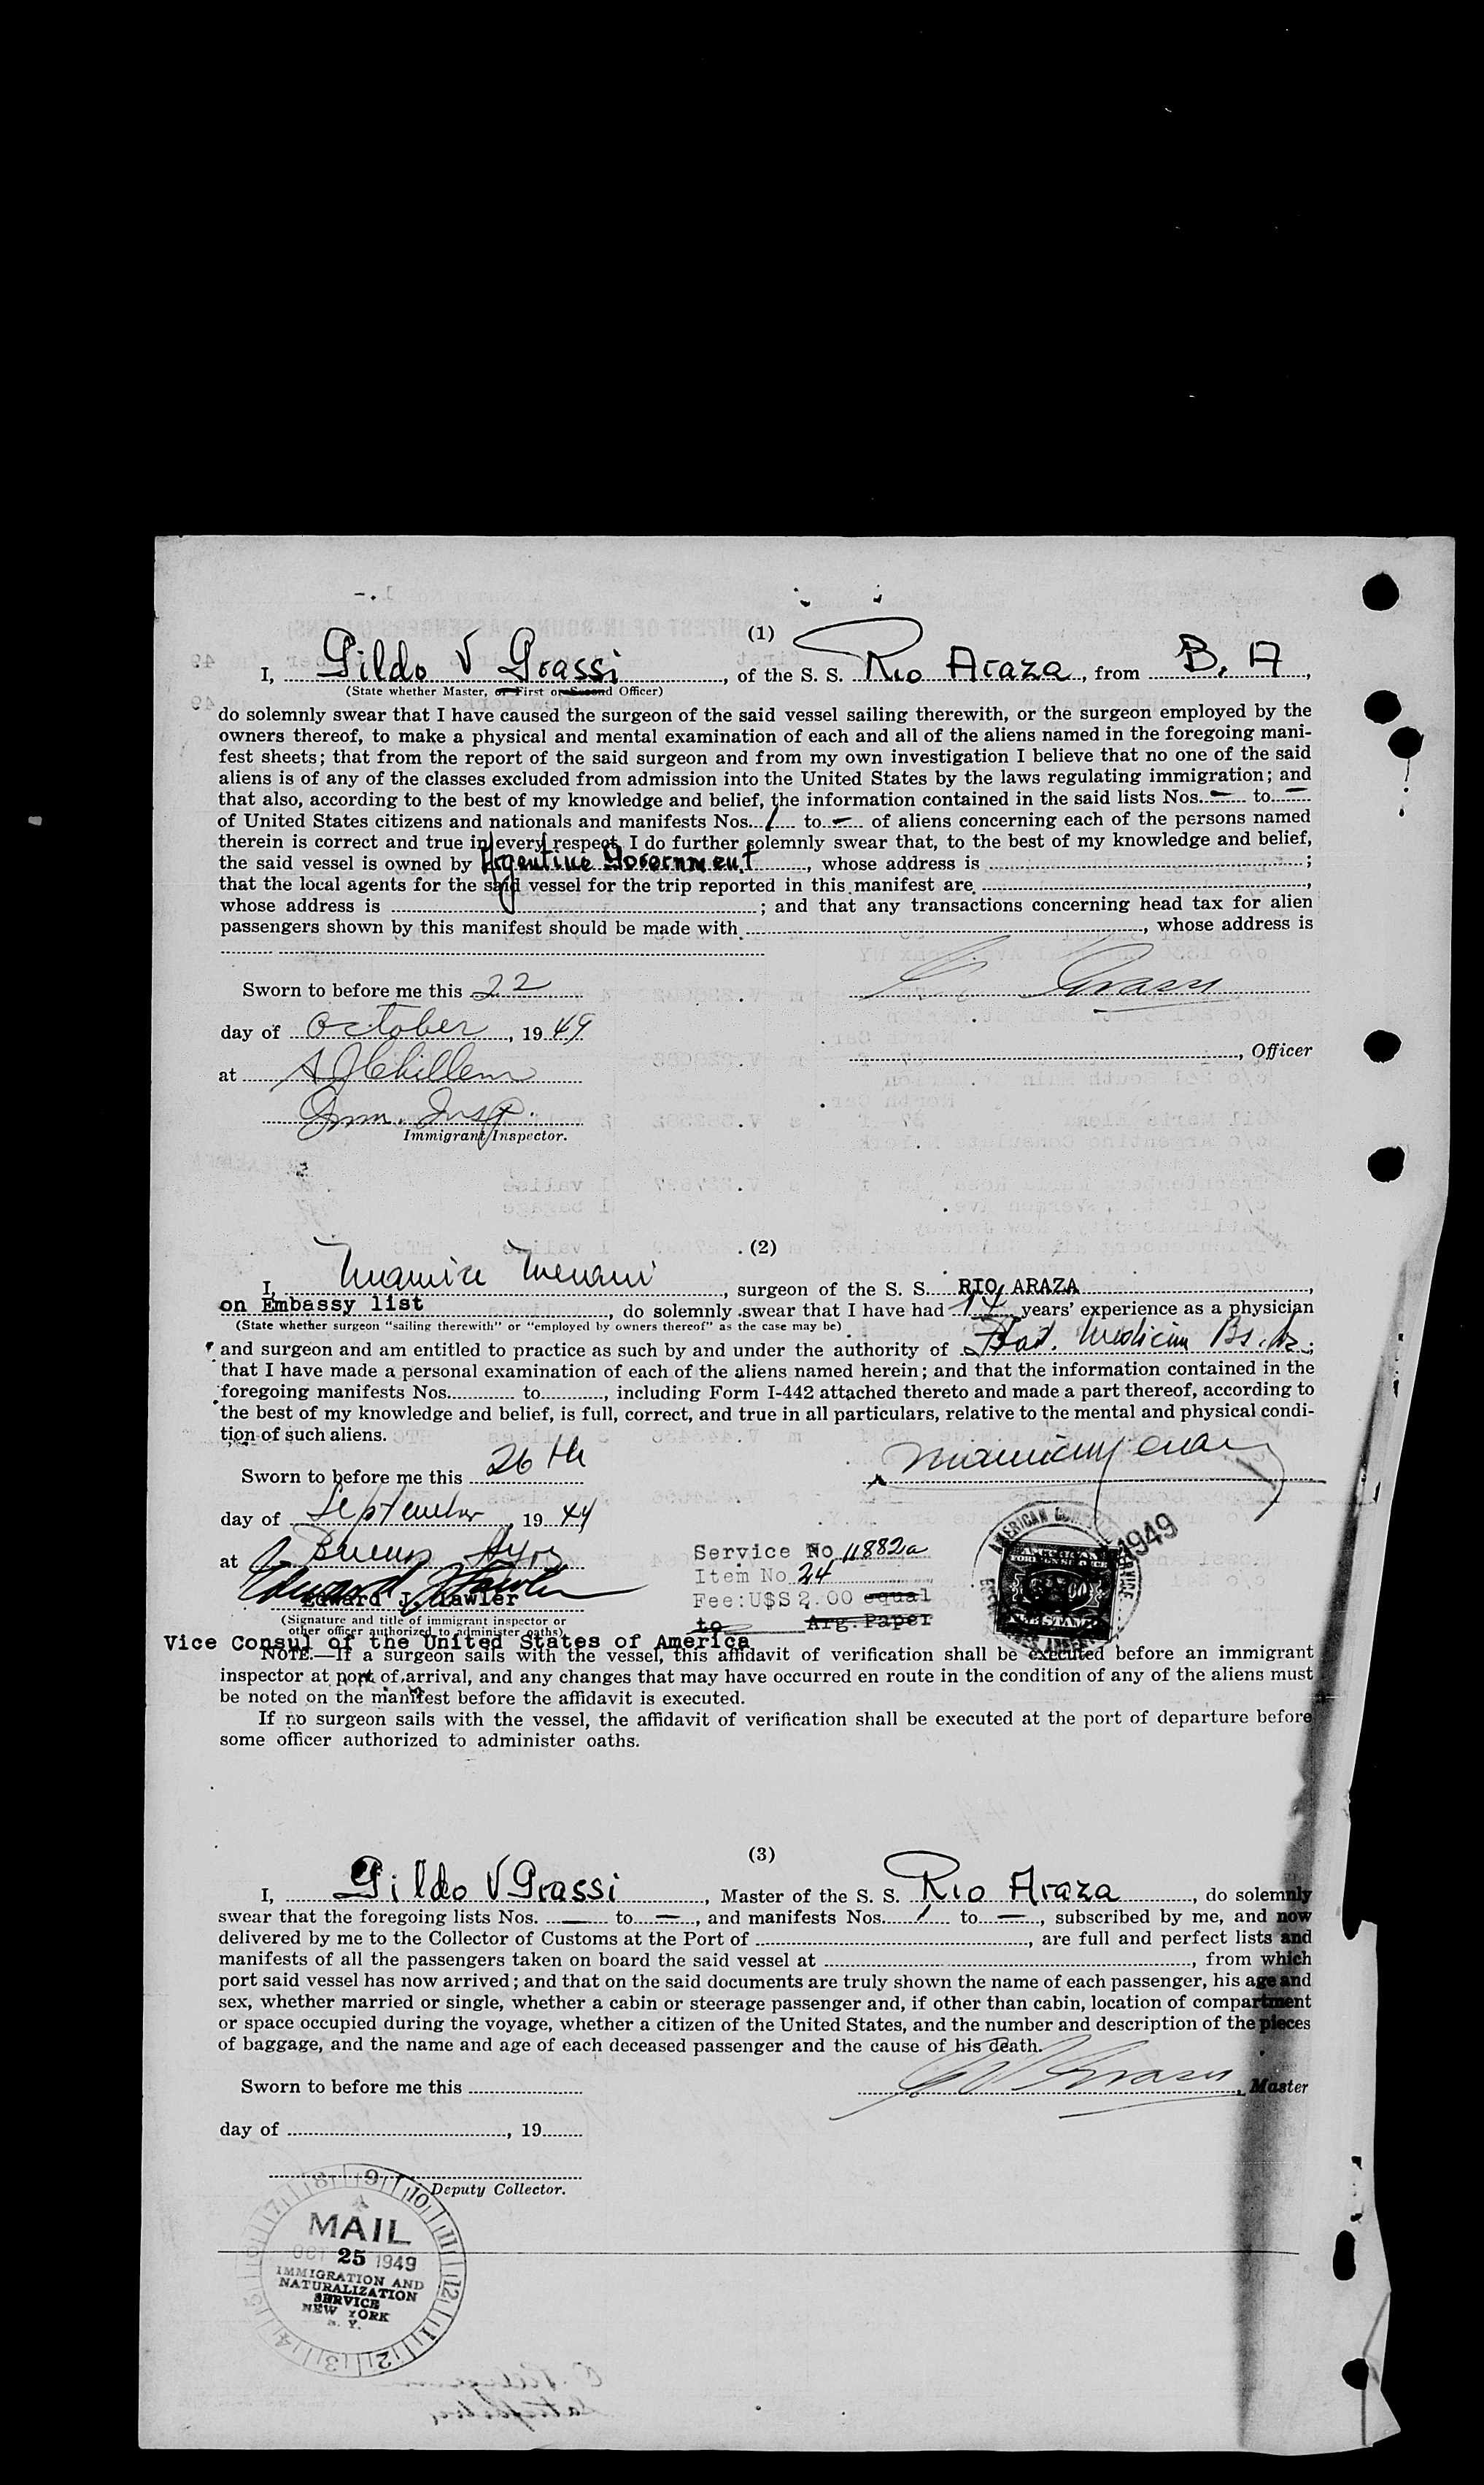 (1)
I, Gildo V Grassi, of the S. S. Rio Araza, from B. A,
(State whether Master, or First or Second Officer)
do solemnly swear that I have caused the surgeon of the said vessel sailing therewith, or the surgeon employed by the
owners thereof, to make a physical and mental examination of each and all of the aliens named in the foregoing mani-
fest sheets; that from the report of the said surgeon and from my own investigation I believe that no one of the said
aliens is of any of the classes excluded from admission into the United States by the laws regulating immigration; and
that also, according to the best of my knowledge and belief, the information contained in the said lists Nos. — to —
of United States citizens and nationals and manifests Nos. 1 to — of aliens concerning each of the persons named
therein is correct and true in every respect. I do further solemnly swear that, to the best of my knowledge and belief,
the said vessel is owned by Argentine Government, whose address is ;
that the local agents for the said vessel for the trip reported in this manifest are ,
whose address is ; and that any transactions concerning head tax for alien
passengers shown by this manifest should be made with , whose address is
Sworn to before me this 22
G Grassi
day of October, 1949
, Officer
at
Imm. Insp.
Immigrant Inspector.
(2)
I, , surgeon of the S. S. RIO ARAZA,
on Embassy list, do solemnly swear that I have had 14 years' experience as a physician
(State whether surgeon "sailing therewith" or "employed by owners thereof" as the case may be)
and surgeon and am entitled to practice as such by and under the authority of Bs. As.;
that I have made a personal examination of each of the aliens named herein; and that the information contained in the
foregoing manifests Nos. to , including Form I-442 attached thereto and made a part thereof, according to
the best of my knowledge and belief, is full, correct, and true in all particulars, relative to the mental and physical condi-
tion of such aliens.
Sworn to before me this 26th
day of September, 1944
1949
at Buenos Ayres
Service No 11882a
Item No 24
Fee:U$S 2.00 equal
to Arg. Paper
AMERICAN
SERVICE
Edward J. Lawler
(Signature and title of immigrant inspector or
other officer authorized to administer oaths)
Vice Consul of the United States of America
NOTE.—If a surgeon sails with the vessel, this affidavit of verification shall be executed before an immigrant
inspector at port of arrival, and any changes that may have occurred en route in the condition of any of the aliens must
be noted on the manifest before the affidavit is executed.
If no surgeon sails with the vessel, the affidavit of verification shall be executed at the port of departure before
some officer authorized to administer oaths.
(3)
I, Gildo V Grassi, Master of the S. S. Rio Araza, do solemnly
swear that the foregoing lists Nos. — to —, and manifests Nos. 1 to —, subscribed by me, and now
delivered by me to the Collector of Customs at the Port of , are full and perfect lists and
manifests of all the passengers taken on board the said vessel at , from which
port said vessel has now arrived; and that on the said documents are truly shown the name of each passenger, his age and
sex, whether married or single, whether a cabin or steerage passenger and, if other than cabin, location of compartment
or space occupied during the voyage, whether a citizen of the United States, and the number and description of the pieces
of baggage, and the name and age of each deceased passenger and the cause of his death.
Sworn to before me this
G V Grassi, Master
day of , 19
Deputy Collector.
MAIL
OCT 25 1949
IMMIGRATION AND
NATURALIZATION
SERVICE
NEW YORK
N. Y.